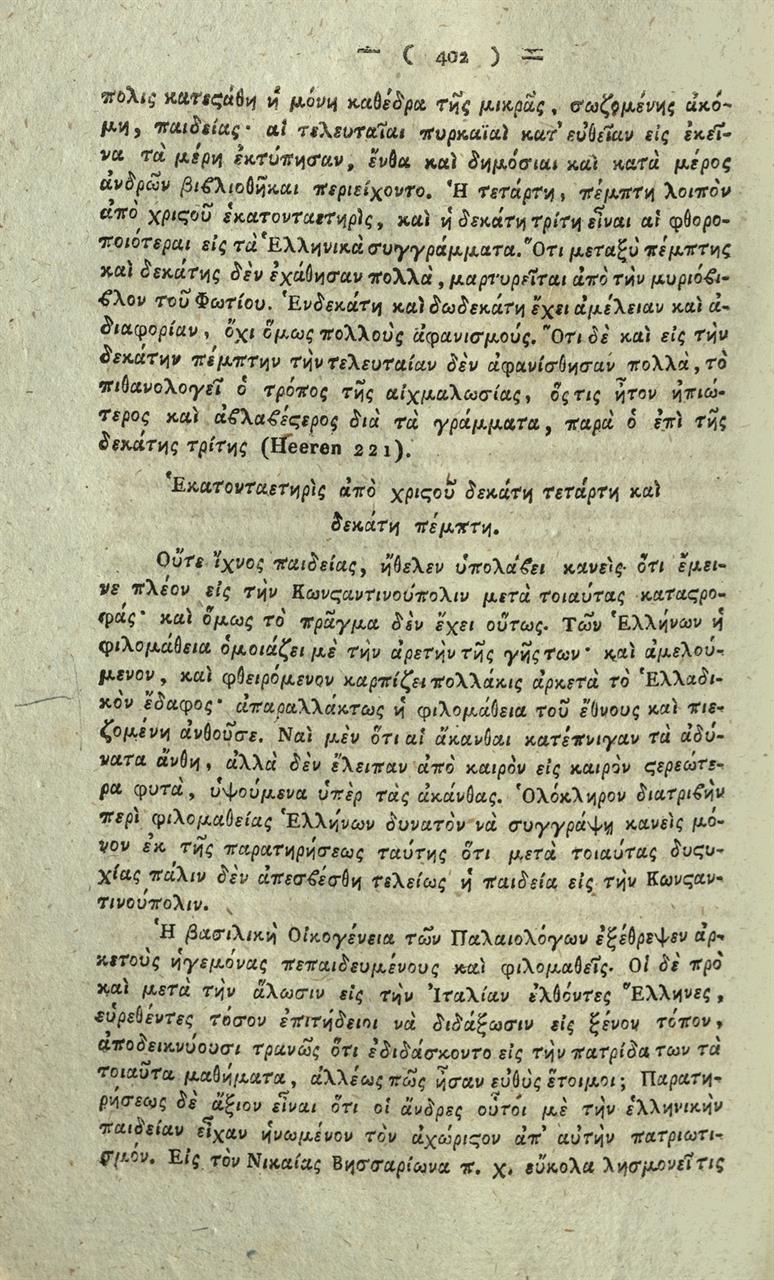 — ( 402 ) —
πολις κατεϛάθη ἡ μόνη καθέδρα τῆς μικρᾶς, σωζομένης ἀκό-
μη, παιδείας· αἱ τελευταῖαι πυρκαϊαὶ κατ' εὐθεῖαν εἰς ἐκεῖ-
να τὰ μέρη ἐκτύπησαν, ἔνθα καὶ δημόσιαι καὶ κατὰ μέρος
ἀνδρῶν βιϐλιοθῆκαι περιείχοντο. Ἡ τετάρτη, πέμπτη λοιπὸν
ἀπὸ χριϛοῦ ἑκατονταετηρὶς, καὶ ἡ δεκάτη τρίτη εἶναι αἱ φθορο-
ποιότεραι εἰς τὰ Ἑλληνικὰ συγγράμματα. Ὅτι μεταξὺ πέμπτης
καὶ δεκάτης δὲν ἐχάθησαν πολλὰ, μαρτυρεῖται ἀπὸ τὴν μυριόϐι-
ϐλον τοῦ Φωτίου. Ἑνδεκάτη καὶ δωδεκάτη ἔχει ἀμέλειαν καὶ ἀ-
διαφορίαν, ὄχι ὅμως πολλοὺς ἀφανισμούς. Ὅτι δὲ καὶ εἰς τὴν
δεκάτην πέμπτην τὴν τελευταίαν δὲν ἀφανίσθησαν πολλὰ, τὸ
πιθανολογεῖ ὁ τρόπος τῆς αἰχμαλωσίας, ὅς τις ἦτον ἠπιώ-
τερος καὶ ἀϐλαϐέϛερος διὰ τὰ γράμματα, παρὰ ὁ ἐπὶ τῆς
δεκάτης τρίτης (Heeren 221).
Ἑκατονταετηρὶς ἀπὸ χριϛοῦ δεκάτη τετάρτη καὶ
δεκάτη πέμπτη.
Οὔτε ἴχνος παιδείας, ἤθελεν ὑπολάϐει κανεὶς ὅτι ἔμει-
νε πλέον εἰς τὴν Κωνϛαντινούπολιν μετὰ τοιαύτας καταϛρο-
φάς· καὶ ὅμως τὸ πρᾶγμα δὲν ἔχει οὕτως. Τῶν Ἑλλήνων ἡ
φιλομάθεια ὁμοιάζει μὲ τὴν ἀρετὴν τῆς γῆς των· καὶ ἀμελού-
μενον, καὶ φθειρόμενον καρπίζει πολλάκις ἀρκετὰ τὸ Ἑλλαδι-
κὸν ἔδαφος· ἀπαραλλάκτως ἡ φιλομάθεια τοῦ ἔθνους καὶ πιε-
ζομένη ἀνθοῦσε. Ναὶ μὲν ὅτι αἱ ἄκανθαι κατέπνιγαν τὰ ἀδύ-
νατα ἄνθη, ἀλλὰ δὲν ἔλειπαν ἀπὸ καιρὸν εἰς καιρὸν ϛερεώτε-
ρα φυτὰ, ὑψούμενα ὑπὲρ τὰς ἀκάνθας. Ὁλόκληρον διατριϐὴν
περὶ φιλομαθείας Ἑλλήνων δυνατὸν νὰ συγγράψῃ κανεὶς μό-
νον ἐκ τῆς παρατηρήσεως ταύτης ὅτι μετὰ τοιαύτας δυϛυ-
χίας πάλιν δὲν ἀπεσϐέσθη τελείως ἡ παιδεία εἰς τὴν Κωνϛαν-
τινούπολιν.
Ἡ βασιλικὴ Οἰκογένεια τῶν Παλαιολόγων ἐξέθρεψεν ἀρ-
κετοὺς ἡγεμόνας πεπαιδευμένους καὶ φιλομαθεῖς. Οἱ δὲ πρὸ
καὶ μετὰ τὴν ἅλωσιν εἰς τὴν Ἰταλίαν ἐλθόντες Ἕλληνες,
εὑρεθέντες τόσον ἐπιτήδειοι νὰ διδάξωσιν εἰς ξένον τόπον,
ἀποδεικνύουσι τρανῶς ὅτι ἐδιδάσκοντο εἰς τὴν πατρίδα των τὰ
τοιαῦτα μαθήματα, ἀλλέως πῶς ἦσαν εὐθὺς ἕτοιμοι; Παρατη-
ρήσεως δὲ ἄξιον εἶναι ὅτι οἱ ἄνδρες οὗτοι μὲ τὴν ἑλληνικὴν
παιδείαν εἶχαν ἡνωμένον τὸν ἀχώριϛον ἀπ' αὐτὴν πατριωτι-
σμόν. Εἰς τὸν Νικαίας Βησσαρίωνα π. χ. εὔκολα λησμονεῖ τις